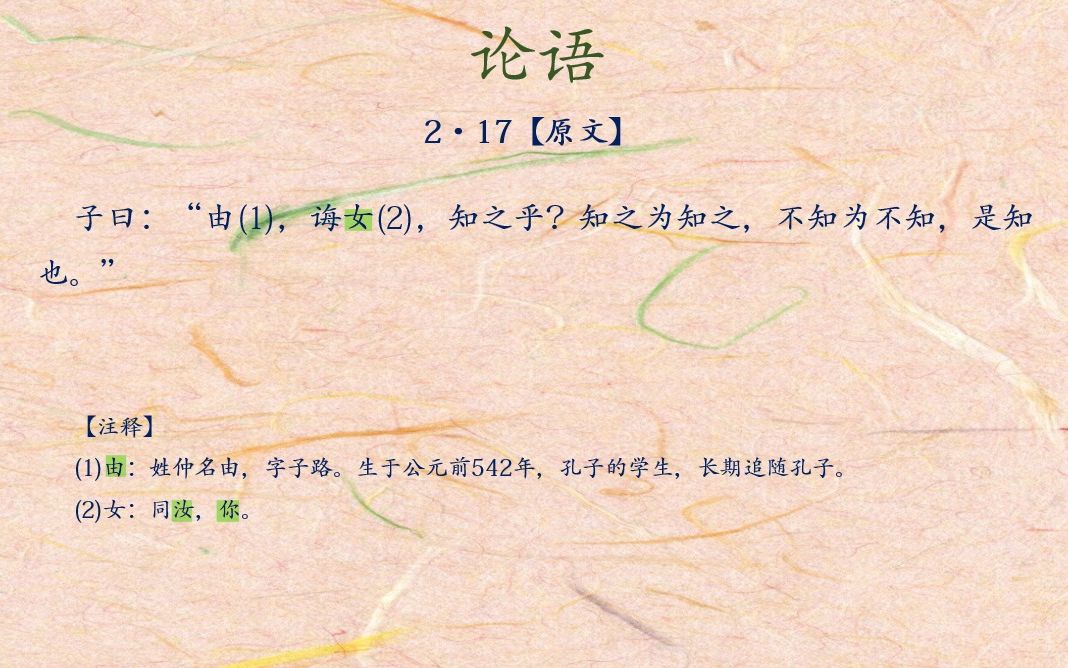 论语
2·17【原文】
子曰：“由(1)，诲女(2)，知之乎？知之为知之，不知为不知，是知
也。”
【注释】
(1)由：姓仲名由，字子路。生于公元前542年，孔子的学生，长期追随孔子。
(2)女：同汝，你。